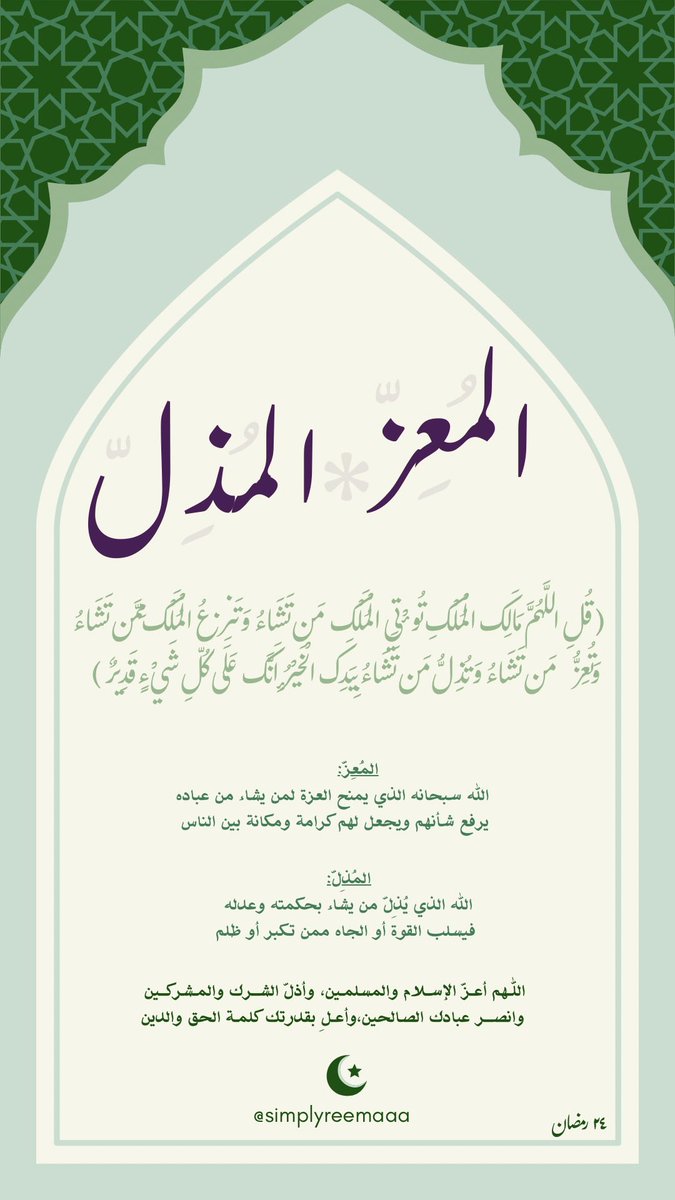 المُعِزّ * المُذِلّ
(قُلِ اللَّهُمَّ مَالِكَ الْمُلْكِ تُؤْتِي الْمُلْكَ مَن تَشَاءُ وَتَنزِعُ الْمُلْكَ مِمَّن تَشَاءُ
وَتُعِزُّ مَن تَشَاءُ وَتُذِلُّ مَن تَشَاءُ بِيَدِكَ الْخَيْرُ إِنَّكَ عَلَى كُلِّ شَيْءٍ قَدِيرٌ)
المُعِزّ:
الله سبحانه الذي يمنح العزة لمن يشاء من عباده
يرفع شأنهم ويجعل لهم كرامة ومكانة بين الناس
المُذِلّ:
الله الذي يُذِلّ من يشاء بحكمته وعدله
فيسلب القوة أو الجاه ممن تكبر أو ظلم
اللّهم أعـزّ الإسـلام والمسلمـين، وأذلّ الشـرك والمـشركـين
وانصـر عبادك الصالحين،وأعـلِ بقدرتك كلمـة الحق والدين
@simplyreemaaa
٢٤ رمضان